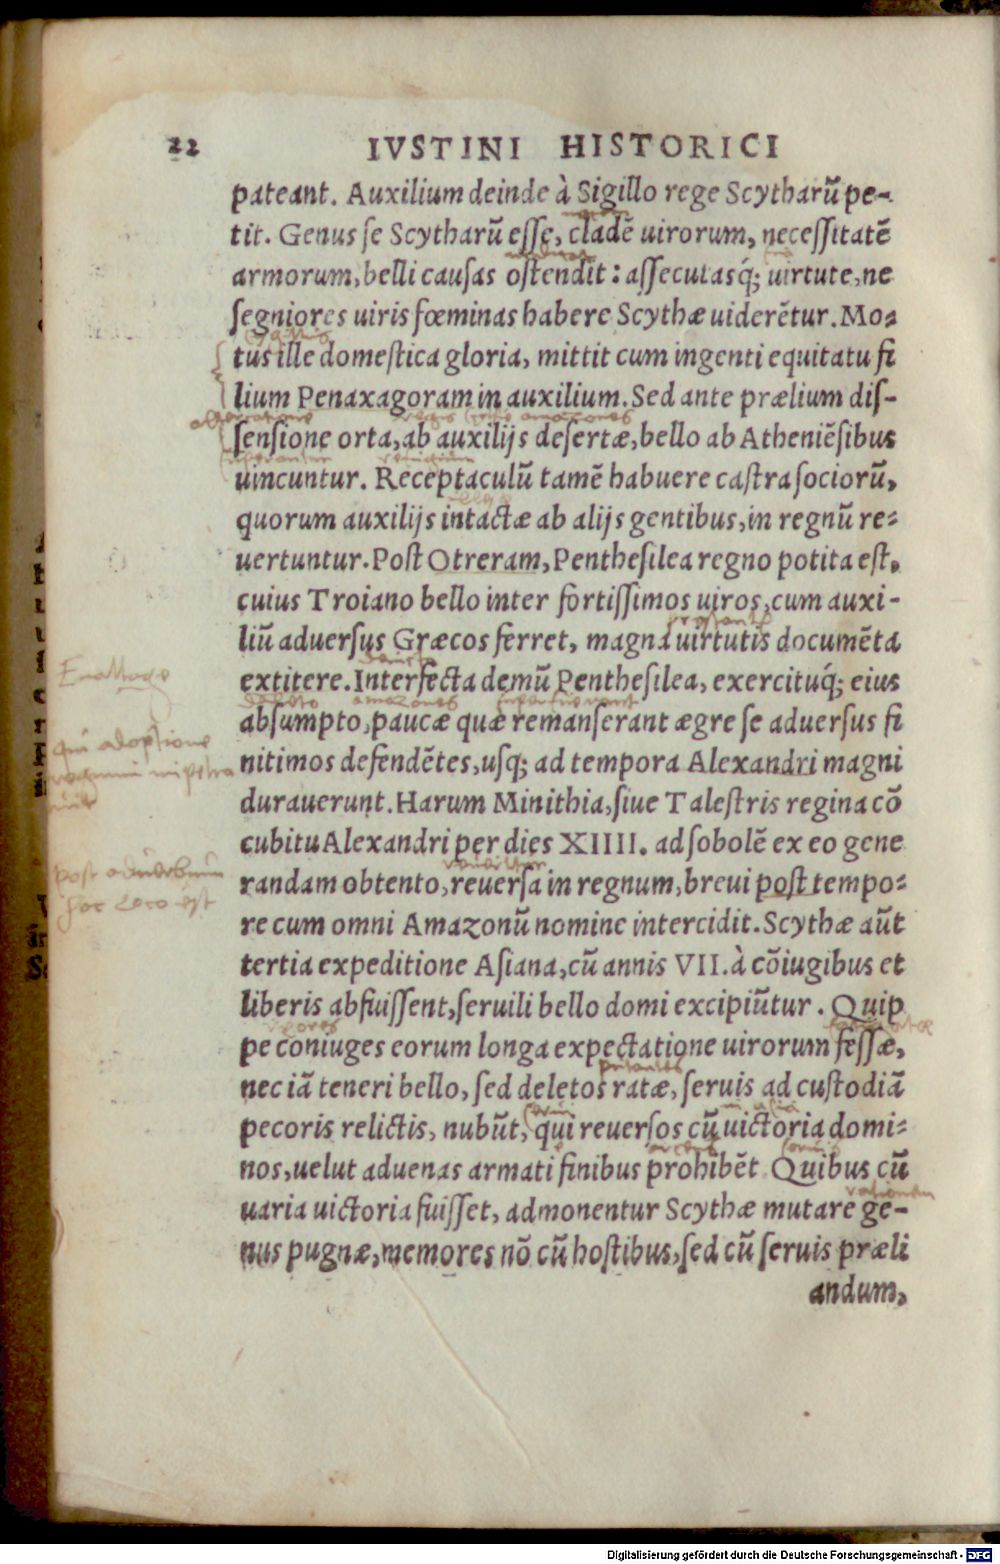 22 IVSTINI HISTORICI
pateant. Auxilium deinde à Sigillo rege Scytharū pe-
tit. Genus se Scytharū esse, cladē uirorum, necessitatē
armorum, belli causas ostendit: assecutasq́; uirtute, ne
segniores uiris fœminas habere Scythæ uiderētur. Mo-
tus ille domestica gloria, mittit cum ingenti equitatu fi
lium Penaxagoram in auxilium. Sed ante prælium dis-
sensione orta, ab auxilijs desertæ, bello ab Atheniēsibus
uincuntur. Receptaculū tamē habuere castra sociorū,
quorum auxilijs intactæ ab alijs gentibus, in regnū re-
uertuntur. Post Otreram, Penthesilea regno potita est,
cuius Troiano bello inter fortissimos uiros, cum auxi-
liū aduersus Græcos ferret, magna uirtutis documēta
extitere. Interfecta demū Penthesilea, exercituq́; eius
absumpto, paucæ quæ remanserant ægre se aduersus fi
nitimos defendētes, usq; ad tempora Alexandri magni
durauerunt. Harum Minithia, siue Talestris regina cō
cubitu Alexandri per dies XIIII. ad sobolē ex eo gene
randam obtento, reuersa in regnum, breui post tempo-
re cum omni Amazonū nomine intercidit. Scythæ aūt
tertia expeditione Asiana, cū annis VII. à cōiugibus et
liberis abfuissent, seruili bello domi excipiūtur. Quip
pe coniuges eorum longa expectatione uirorum fessæ,
nec iā teneri bello, sed deletos ratæ, seruis ad custodiā
pecoris relictis, nubūt, qui reuersos cū uictoria domi-
nos, uelut aduenas armati finibus prohibēt. Quibus cū
uaria uictoria fuisset, admonentur Scythæ mutare ge-
nus pugnæ, memores nō cū hostibus, sed cū seruis præli
andum,
Enallage
qui adoptione
post aduerbium
hoc loco est
amazones
Digitalisierung gefördert durch die Deutsche Forschungsgemeinschaft - DFG